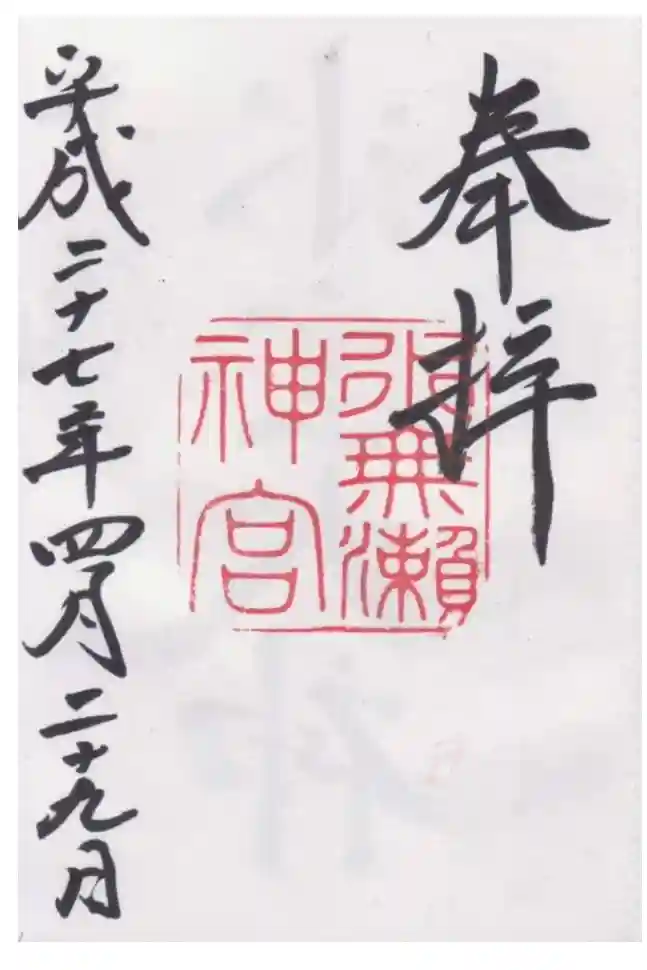 奉拝
水無瀬
神宮
平成二十七年四月二十九日